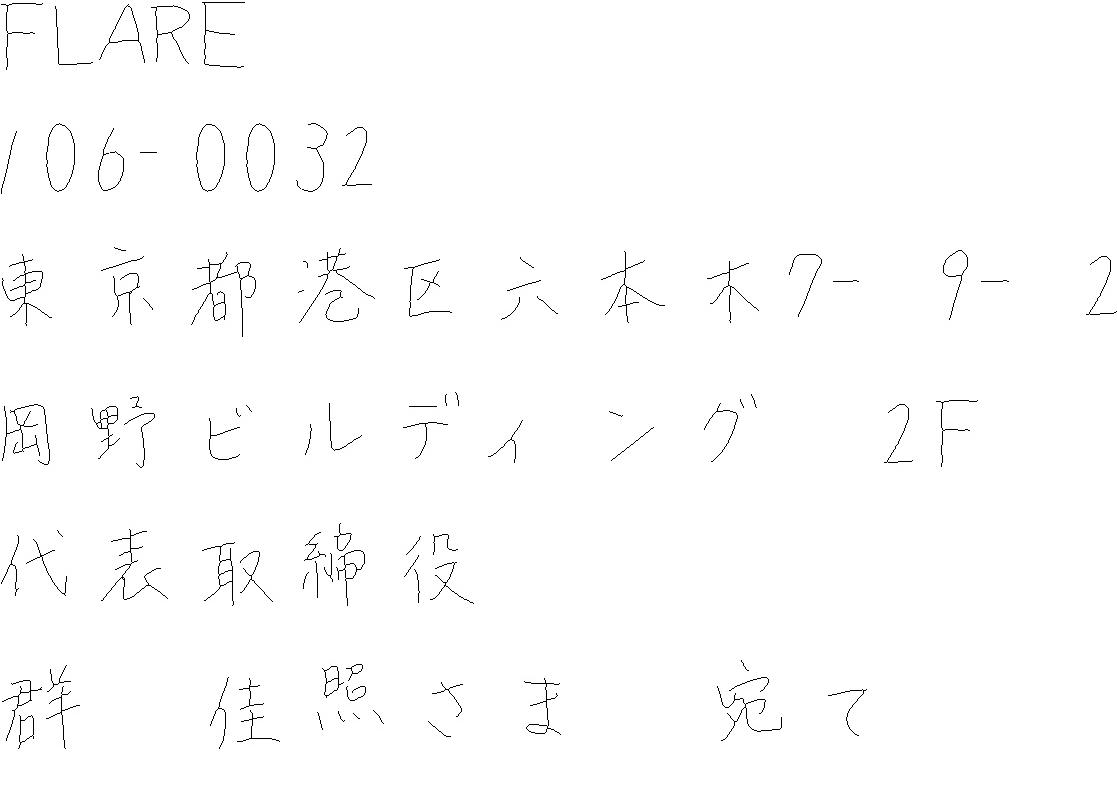 FLARE
106-0032
東京都港区六本木7-9-2
岡野ビルディング 2F
代表取締役
群 佳照さま 宛て